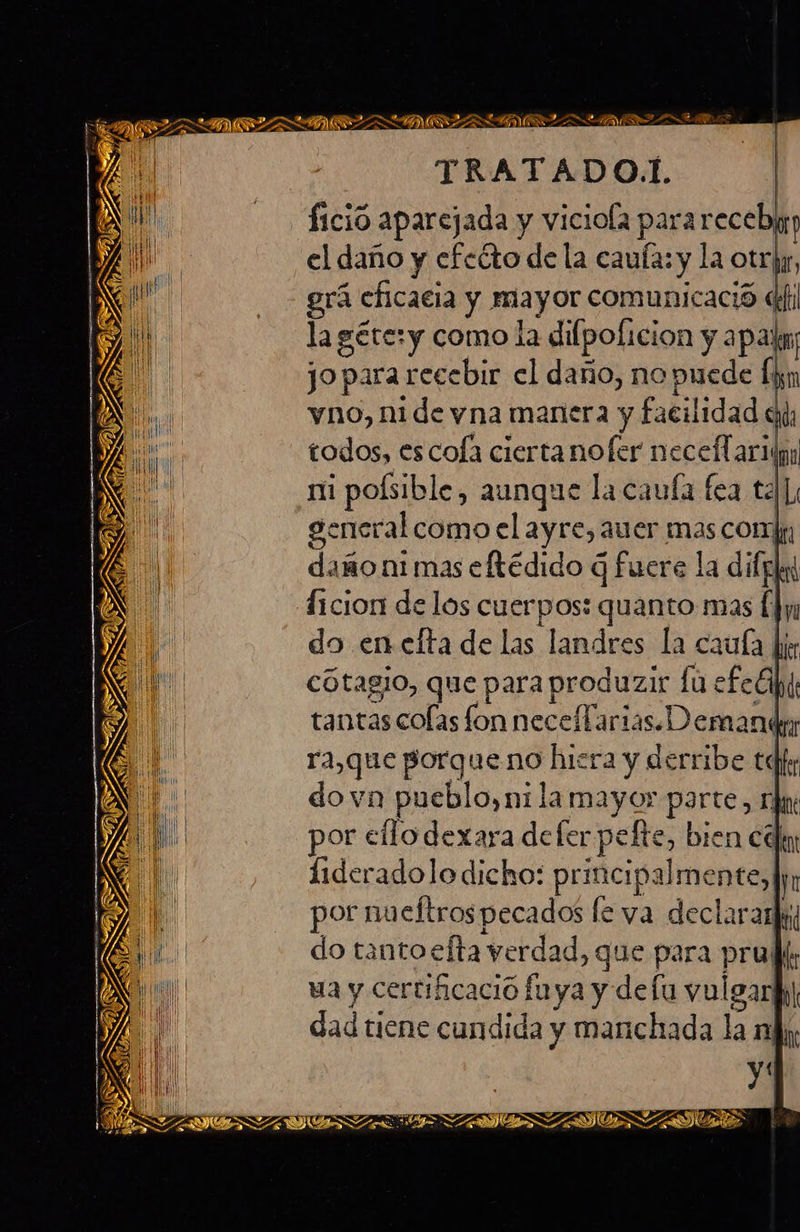 TRATADO.I.
fició aparejada y viciosa para
el daño y efecto de la causa: y la
grã eficacia y mayor comunicació
la gẽte: y como la disposicion y
jo para recebir el daño, no puede
vno, ni de vna manera y facilidad
todos, es cosa cierta no ser
ni possible, aunque la causa sea
general como el ayre, auer mas
daño ni mas estẽdido q̃ fuere la
ficion de los cuerpos: quanto mas
do en esta de las landres la causa
cõtagio, que para produzir su
tantas cosas son necessarias.
ra, que porque no hiera y derribe
do vn pueblo, ni la mayor parte,
por esso dexara de ser peste, bien
siderado lo dicho: principalmente,
por nuestros pecados se va
do tanto esta verdad, que para
ua y certificació suya y de su
dad tiene cundida y manchada la